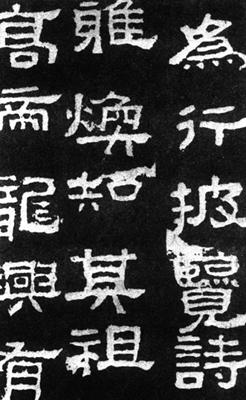 為行披覽詩
雅煥知其祖
高帝龍興有